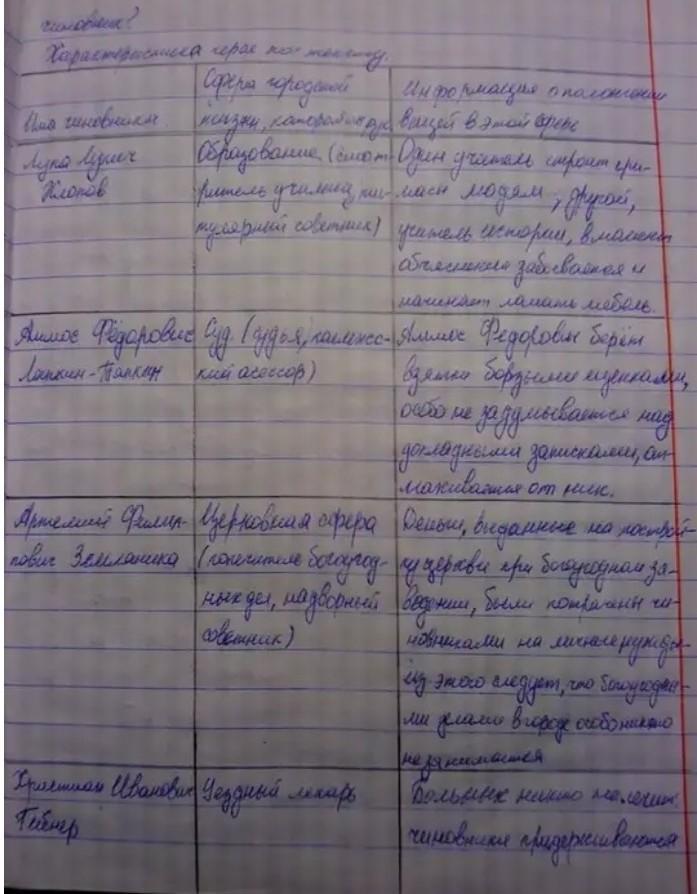 чиновник?
Характеристика героя по тексту.
Имя чиновника
Сфера городской
жизни, которой
Информация о положении
вещей в этой сфере
Лука Лукич
Хлопов
Образование (смот-
ритель училищ, ти-
тулярный советник)
Один учитель строит гри-
масы людям, другой,
учитель истории, в момент
объяснения забывается и
начинает ломать мебель.
Аммос Фёдорович
Ляпкин-Тяпкин
Суд. (судья, коллежс-
кий асессор)
Аммос Федорович берёт
взятки борзыми щенками,
особо не задумывается над
докладными записками, от-
махивается от них.
Артемий Филип-
пович Земляника
Церковная сфера
(попечитель богоугод-
ных дел, надворный
советник)
Деньги, выданные на построй-
ку церкви при богоугодном за-
ведении, были потрачены чи-
новниками на личные нужды
из этого следует, что богоугодны-
ми делами в городе особо никто
не занимается
Христиан Иванович
Гибнер
Уездный лекарь
Больных никто не лечит.
чиновники придерживаются